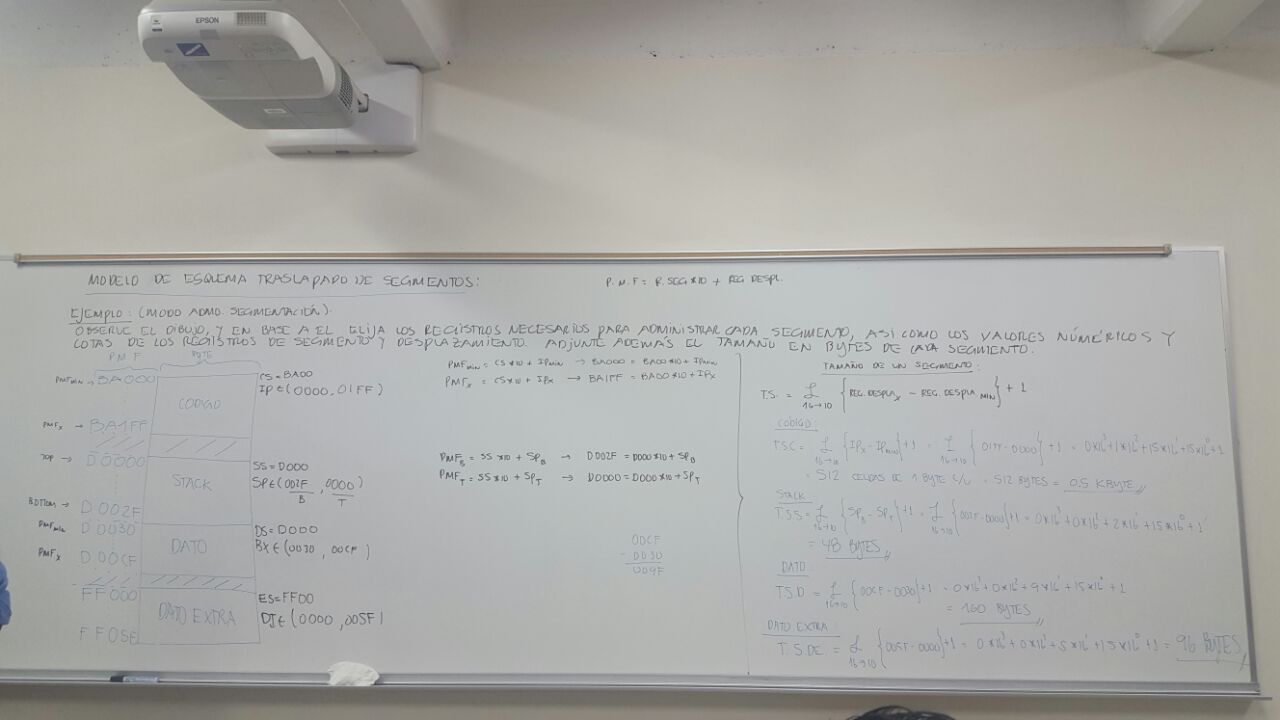 EPSON
MODELO DE ESQUEMA TRASLAPADO DE SEGMENTOS:
P.M.F = R.SEG*10 + REG DESPL.
EJEMPLO: (MODO ADMO. SEGMENTACIÓN).
OBSERVE EL DIBUJO, Y EN BASE A EL ELIJA LOS REGISTROS NECESARIOS PARA ADMINISTRAR CADA SEGMENTO, ASI COMO LOS VALORES NÚMÉRICOS Y
COTAS DE LOS REGISTROS DE SEGMENTO Y DESPLAZAMIENTO. ADJUNTE ADEMÁS EL TAMAÑO EN BYTES DE CADA SEGMENTO.
PMF BYTE
PMFmin → BA000
CODIGO
CS = BA00
IP ∈ (0000, 01FF)
PMFx → BA1FF
TOP → D0000
STACK
SS = D000
SP ∈ (002F, 0000)
B T
BOTTOM → D002F
PMFmin D0030
DATO
DS = D000
BX ∈ (0030, 00CF)
PMFx D00CF
FF000
DATO EXTRA
ES = FF00
DI ∈ (0000, 005F)
FF05E
PMFmin = CS*10 + IPmin → BA000 = BA00*10 + IPmin
PMFx = CS*10 + IPx → BA1FF = BA00*10 + IPx
PMFB = SS*10 + SPB → D002F = D000*10 + SPB
PMFT = SS*10 + SPT → D0000 = D000*10 + SPT
00CF
- 0030
009F
TAMAÑO DE UN SEGMENTO:
T.S. = L 16→10 {REG.DESPLAx - REG.DESPLA.MIN} + 1
CODIGO:
T.S.C = L 16→10 {IPx - IPmin} + 1 = L 16→10 {01FF - 0000} + 1 = 0*16³ + 1*16² + 15*16¹ + 15*16⁰ + 1
= 512 CELDAS DE 1 BYTE C/U = 512 BYTES = 0.5 KBYTE
STACK
T.S.S = L 16→10 {SPB - SPT} + 1 = L 16→10 {002F - 0000} + 1 = 0*16³ + 0*16² + 2*16¹ + 15*16⁰ + 1
= 48 BYTES
DATO:
T.S.D = L 16→10 {00CF - 0030} + 1 = 0*16³ + 0*16² + 9*16¹ + 15*16⁰ + 1
= 160 BYTES
DATO EXTRA:
T.S.DE. = L 16→10 {005F - 0000} + 1 = 0*16³ + 0*16² + 5*16¹ + 15*16⁰ + 1 = 96 BYTES